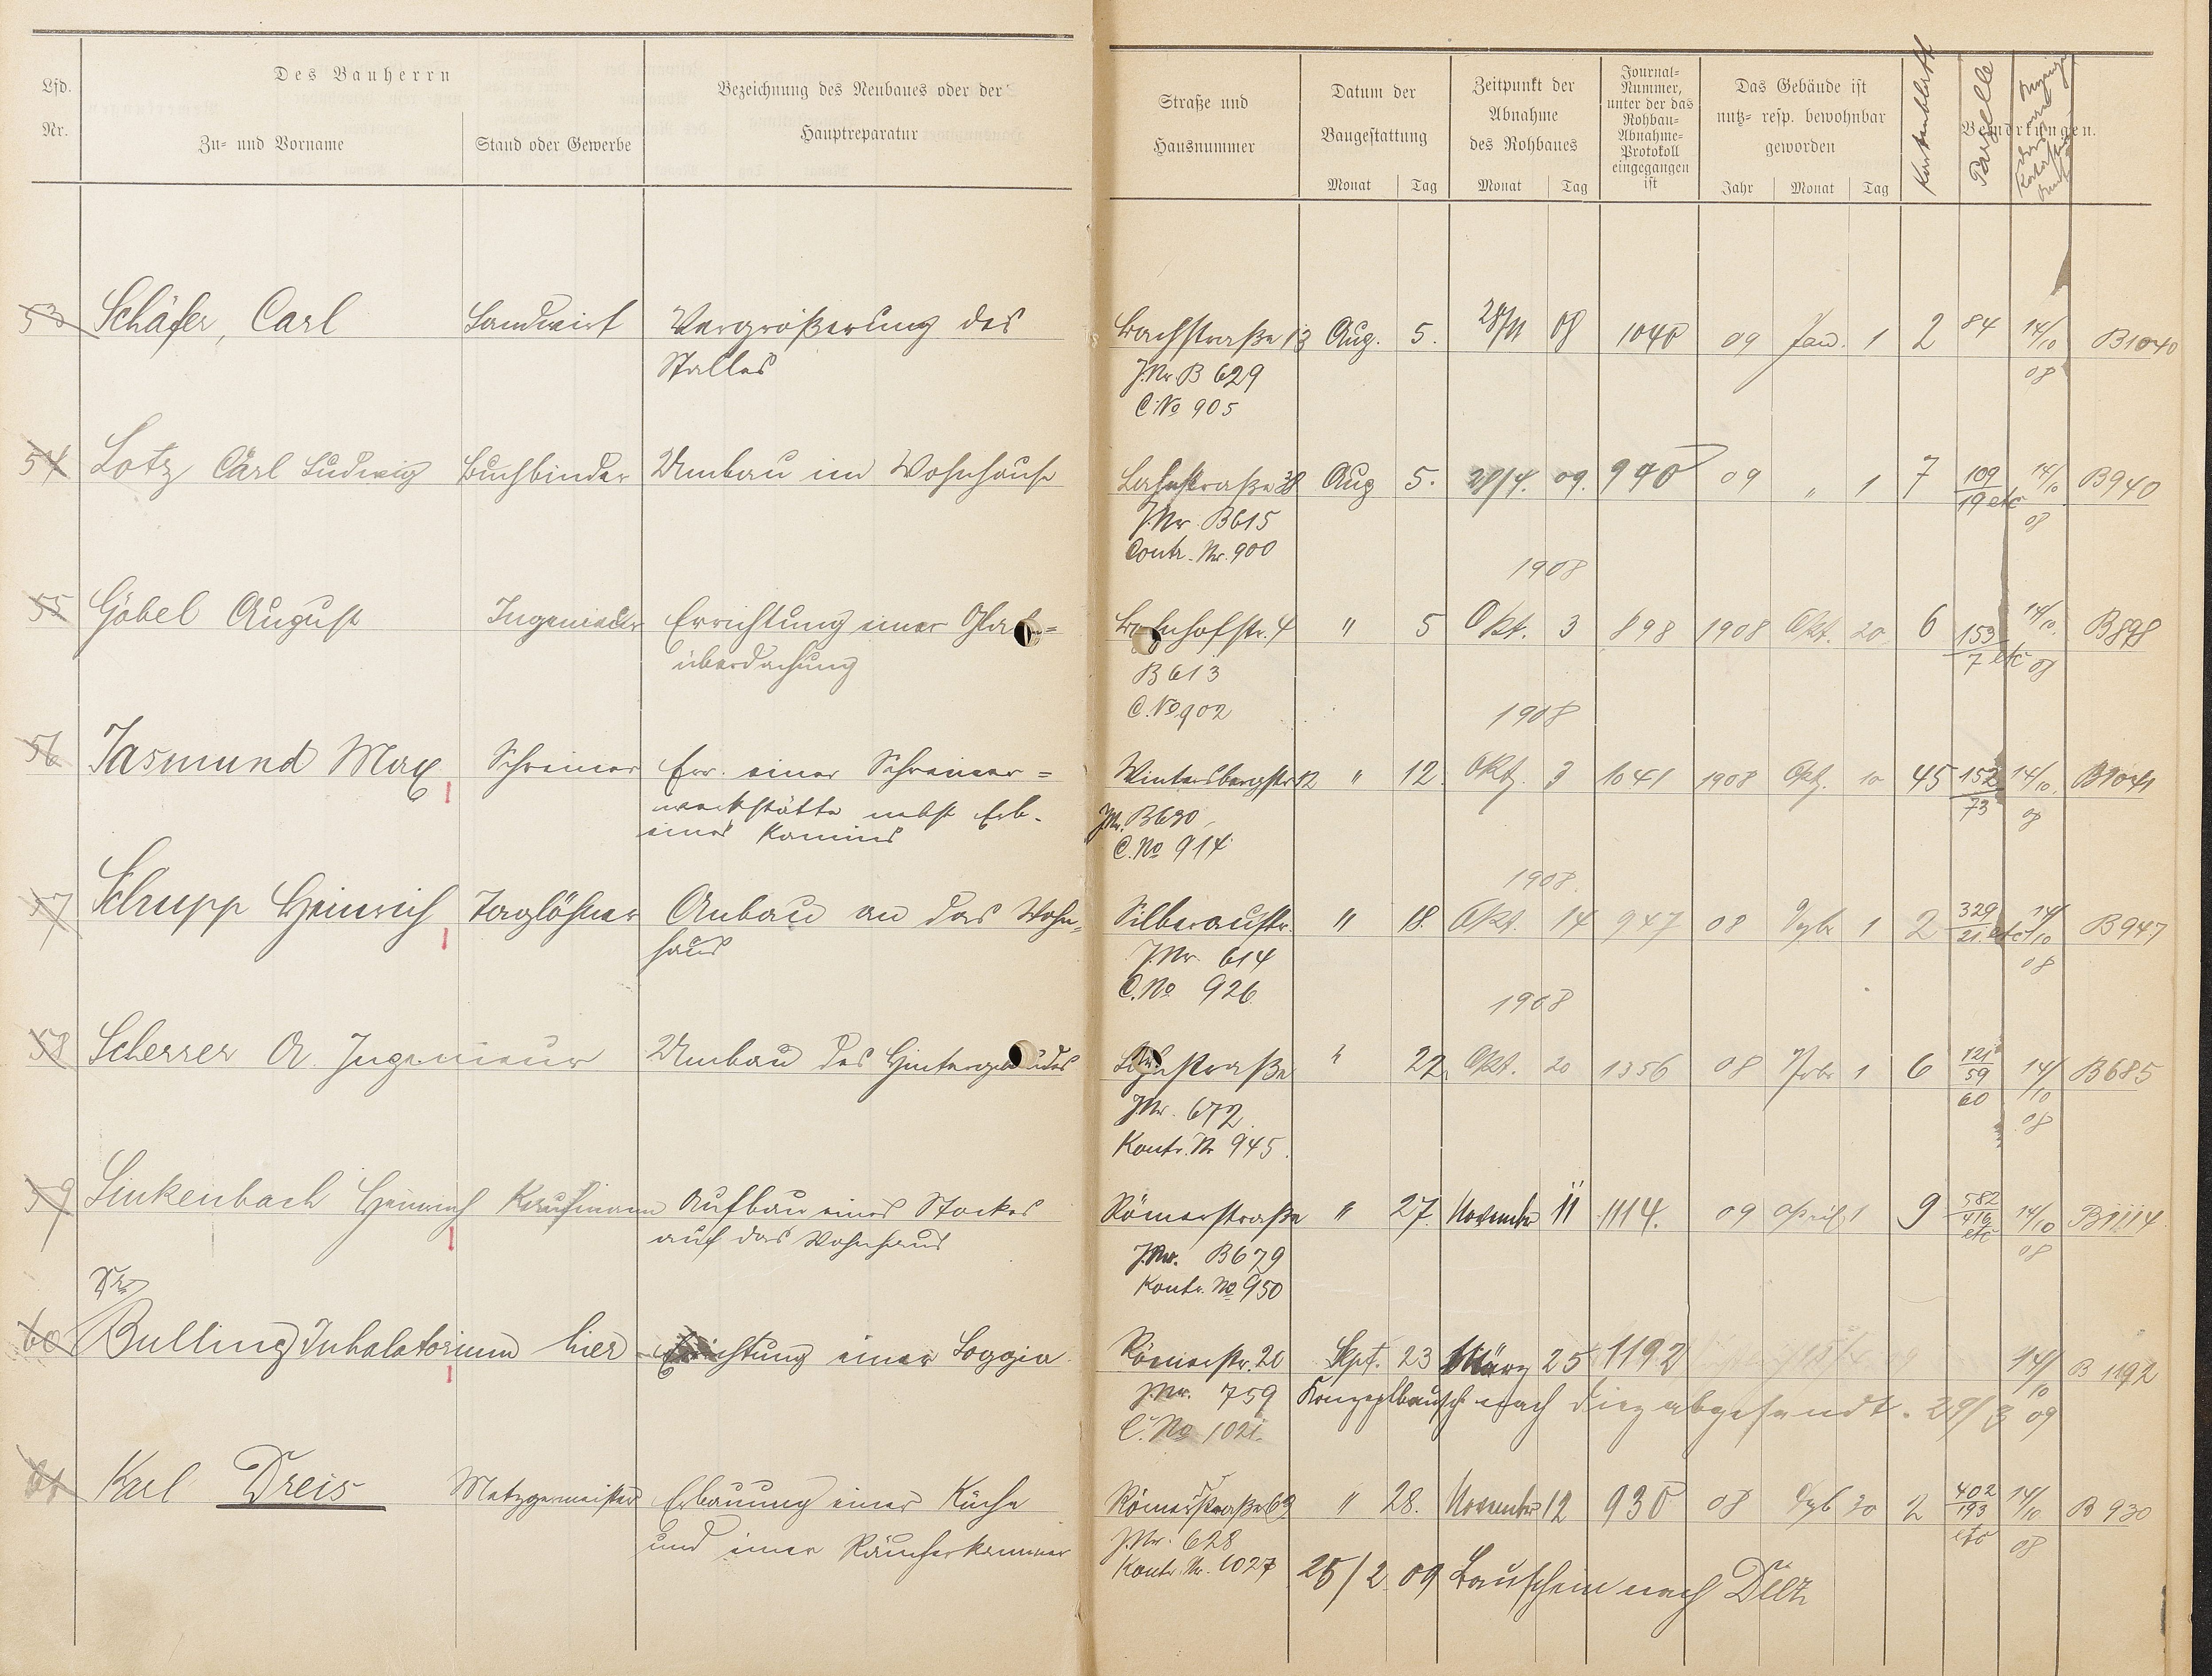 Lfd. Nr.
Des Bauherrn
Zu- und Vorname
Stand oder Gewerbe
Bezeichnung des Neubaues oder der
Hauptreparatur
Straße und
Hausnummer
Datum der
Baugestattung
Monat Tag
Zeitpunkt der
Abnahme
des Rohbaues
Monat Tag
Journal-
Nummer,
unter der das
Rohbau-
Abnahme-
Protokoll
eingegangen
ist
Das Gebäude ist
nutz- resp. bewohnbar
geworden
Jahr Monat Tag
Bemerkungen.
Kartenblatt
Parzelle
53 Schäfer, Carl Landwirt Vergrößerung des Bachstraße 13 Aug. 5. 08 1040 09 Jan. 1 2 84 14/10 B1040
Stalles J.Nr. B 629 08
C. No 905
54 Lotz Carl Ludwig Buchbinder Umbau im Wohnhause Lahnstraße 38 Aug 5. 28/4. 09. 940 09 " 1 7 109/19 etc 14/10 B940
J.Nr. B615 08
Contr. Nr. 900
1908
55 Göbel August Ingenieur Errichtung einer " 5 Okt. 3 898 1908 Okt. 20 6 153/7 etc 14/10. B898
überdachung B 613 08
C. No 902
1908
56 Jasmund Max Schreiner Err. einer Schreiner= Wintersbergstr. 12 " 12. Okt. 3 1041 1908 Okt. 10 45 152/73 14/10. B1041
werkstätte nebst Erb. J.Nr. B630 08
eines Kamins C. No 914
1908.
57 Schupp Heinrich Taglöhner Anbau an das Wohn= Silberaustr. " 18. Okt. 14 947 08 1 2 329/21 etc 14/10 B947
haus J.Nr. 614 08
C. No 926
1908
58 Scherrer A. Ingenieur Umbau des Hintergebäudes " 22. Okt. 20 1356 08 1 6 121/59 14/10 B685
J.Nr. 672 60 08
Kontr. Nr 945.
59 Linkenbach Heinrich Kaufmann Aufbau eines Stockes Römerstraße " 27. November 11 1114. 09 April 1 9 582/416 etc 14/10 B1114
auf das Wohnhaus J.Nr. B679 08
Kontr. No 950
Dr.
60 Bulling Inhalatorium hier Errichtung einer Loggia Römerstr. 20 Sept. 23 März 25 1192 14/10 B 1192
J.Nr. 759 nach Diez abgesandt. 29/3 09
C. No 1021.
61 Karl Dreis Metzgermeister Erbauung einer Küche Römerstraße 69 " 28. November 12 930 08 30 2 402/193 etc 14/10 B 930
und einer Räucherkammer J.Nr. 628 08
Kontr. Nr. 1027 25/2 09 Bauschein nach Diez